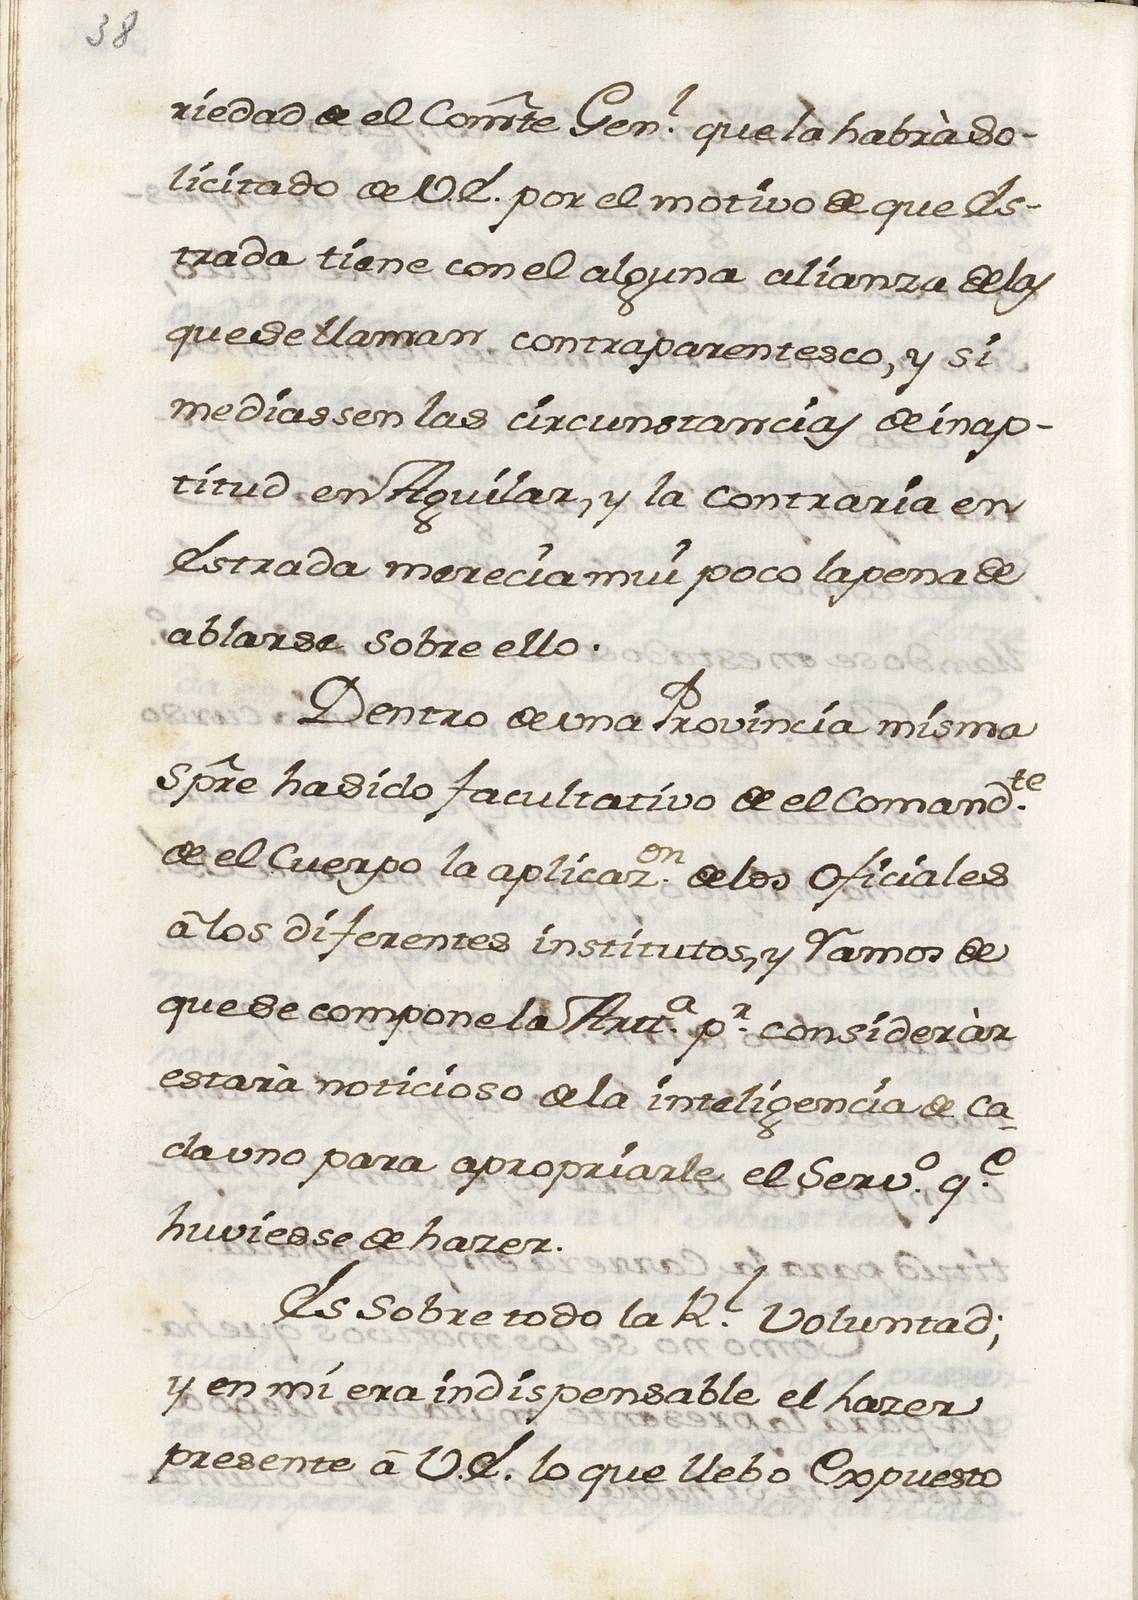 38
riedad de el Com̃te Gen.l que la habrà so-
licitado de V.E. por el motivo de que Es-
trada tiene con el alguna alianza de las
que se llaman contraparentesco, y si
mediassen las circunstancias de inap-
titud en Aguilar, y la contraria en
Estrada merecia mui poco la pena de
ablarse sobre ello.
Dentro de una Provincia misma
sp̃re ha sido facultativo de el Comand.te
de el Cuerpo la aplicaz.on de los Oficiales
à los diferentes institutos, y Ramos de
que se compone la Artt.a p.r consideràr
estarà noticioso de la inteligencia de ca-
da uno para apropriarle el Serv.o q.e
huviesse de hazer.
Es sobre todo la R.l Voluntad;
y en mi era indispensable el hazer
presente à V.E. lo que llebo Expuesto